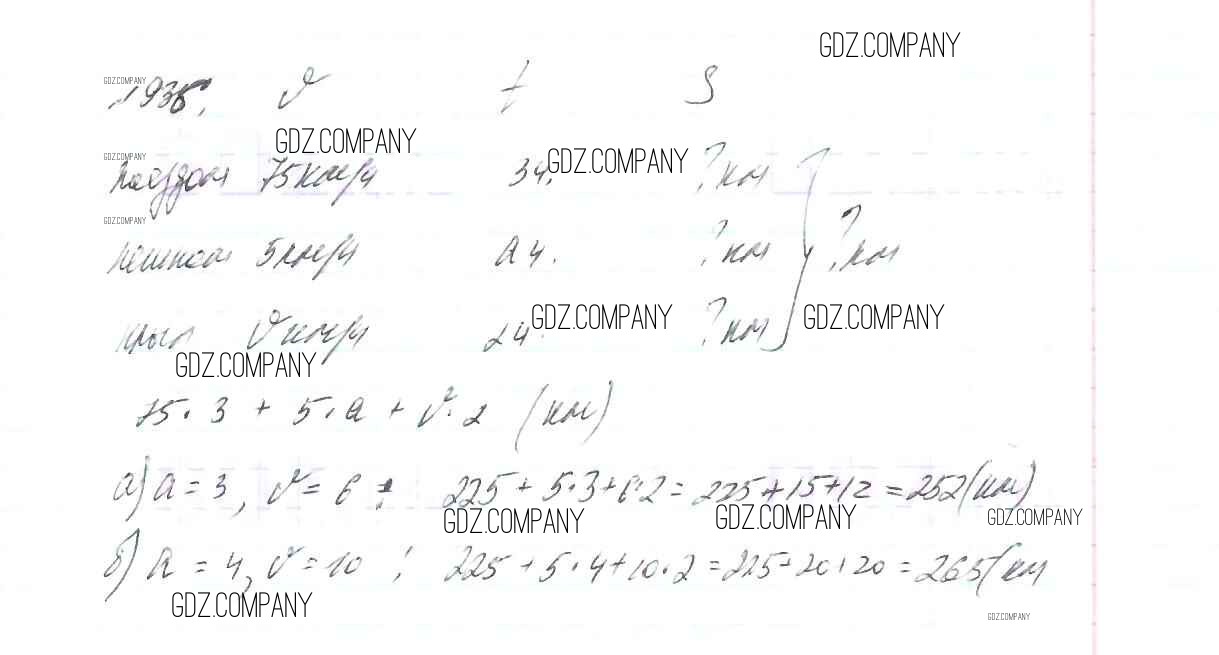 GDZ.COMPANY
GDZ.COMPANY
№ 938. v t S
GDZ.COMPANY
GDZ.COMPANY GDZ.COMPANY
поездом 75 км/ч 3 ч. ? км
GDZ.COMPANY
пешком 5 км/ч a ч. ? км ? км
GDZ.COMPANY GDZ.COMPANY
v км/ч 2 ч. ? км
GDZ.COMPANY
75 · 3 + 5 · a + v · 2 (км)
а) a = 3, v = 6 : 225 + 5·3 + 6·2 = 225 + 15 + 12 = 252 (км)
GDZ.COMPANY GDZ.COMPANY GDZ.COMPANY
б) a = 4, v = 10 : 225 + 5·4 + 10·2 = 225 + 20 + 20 = 265 (км
GDZ.COMPANY
GDZ.COMPANY